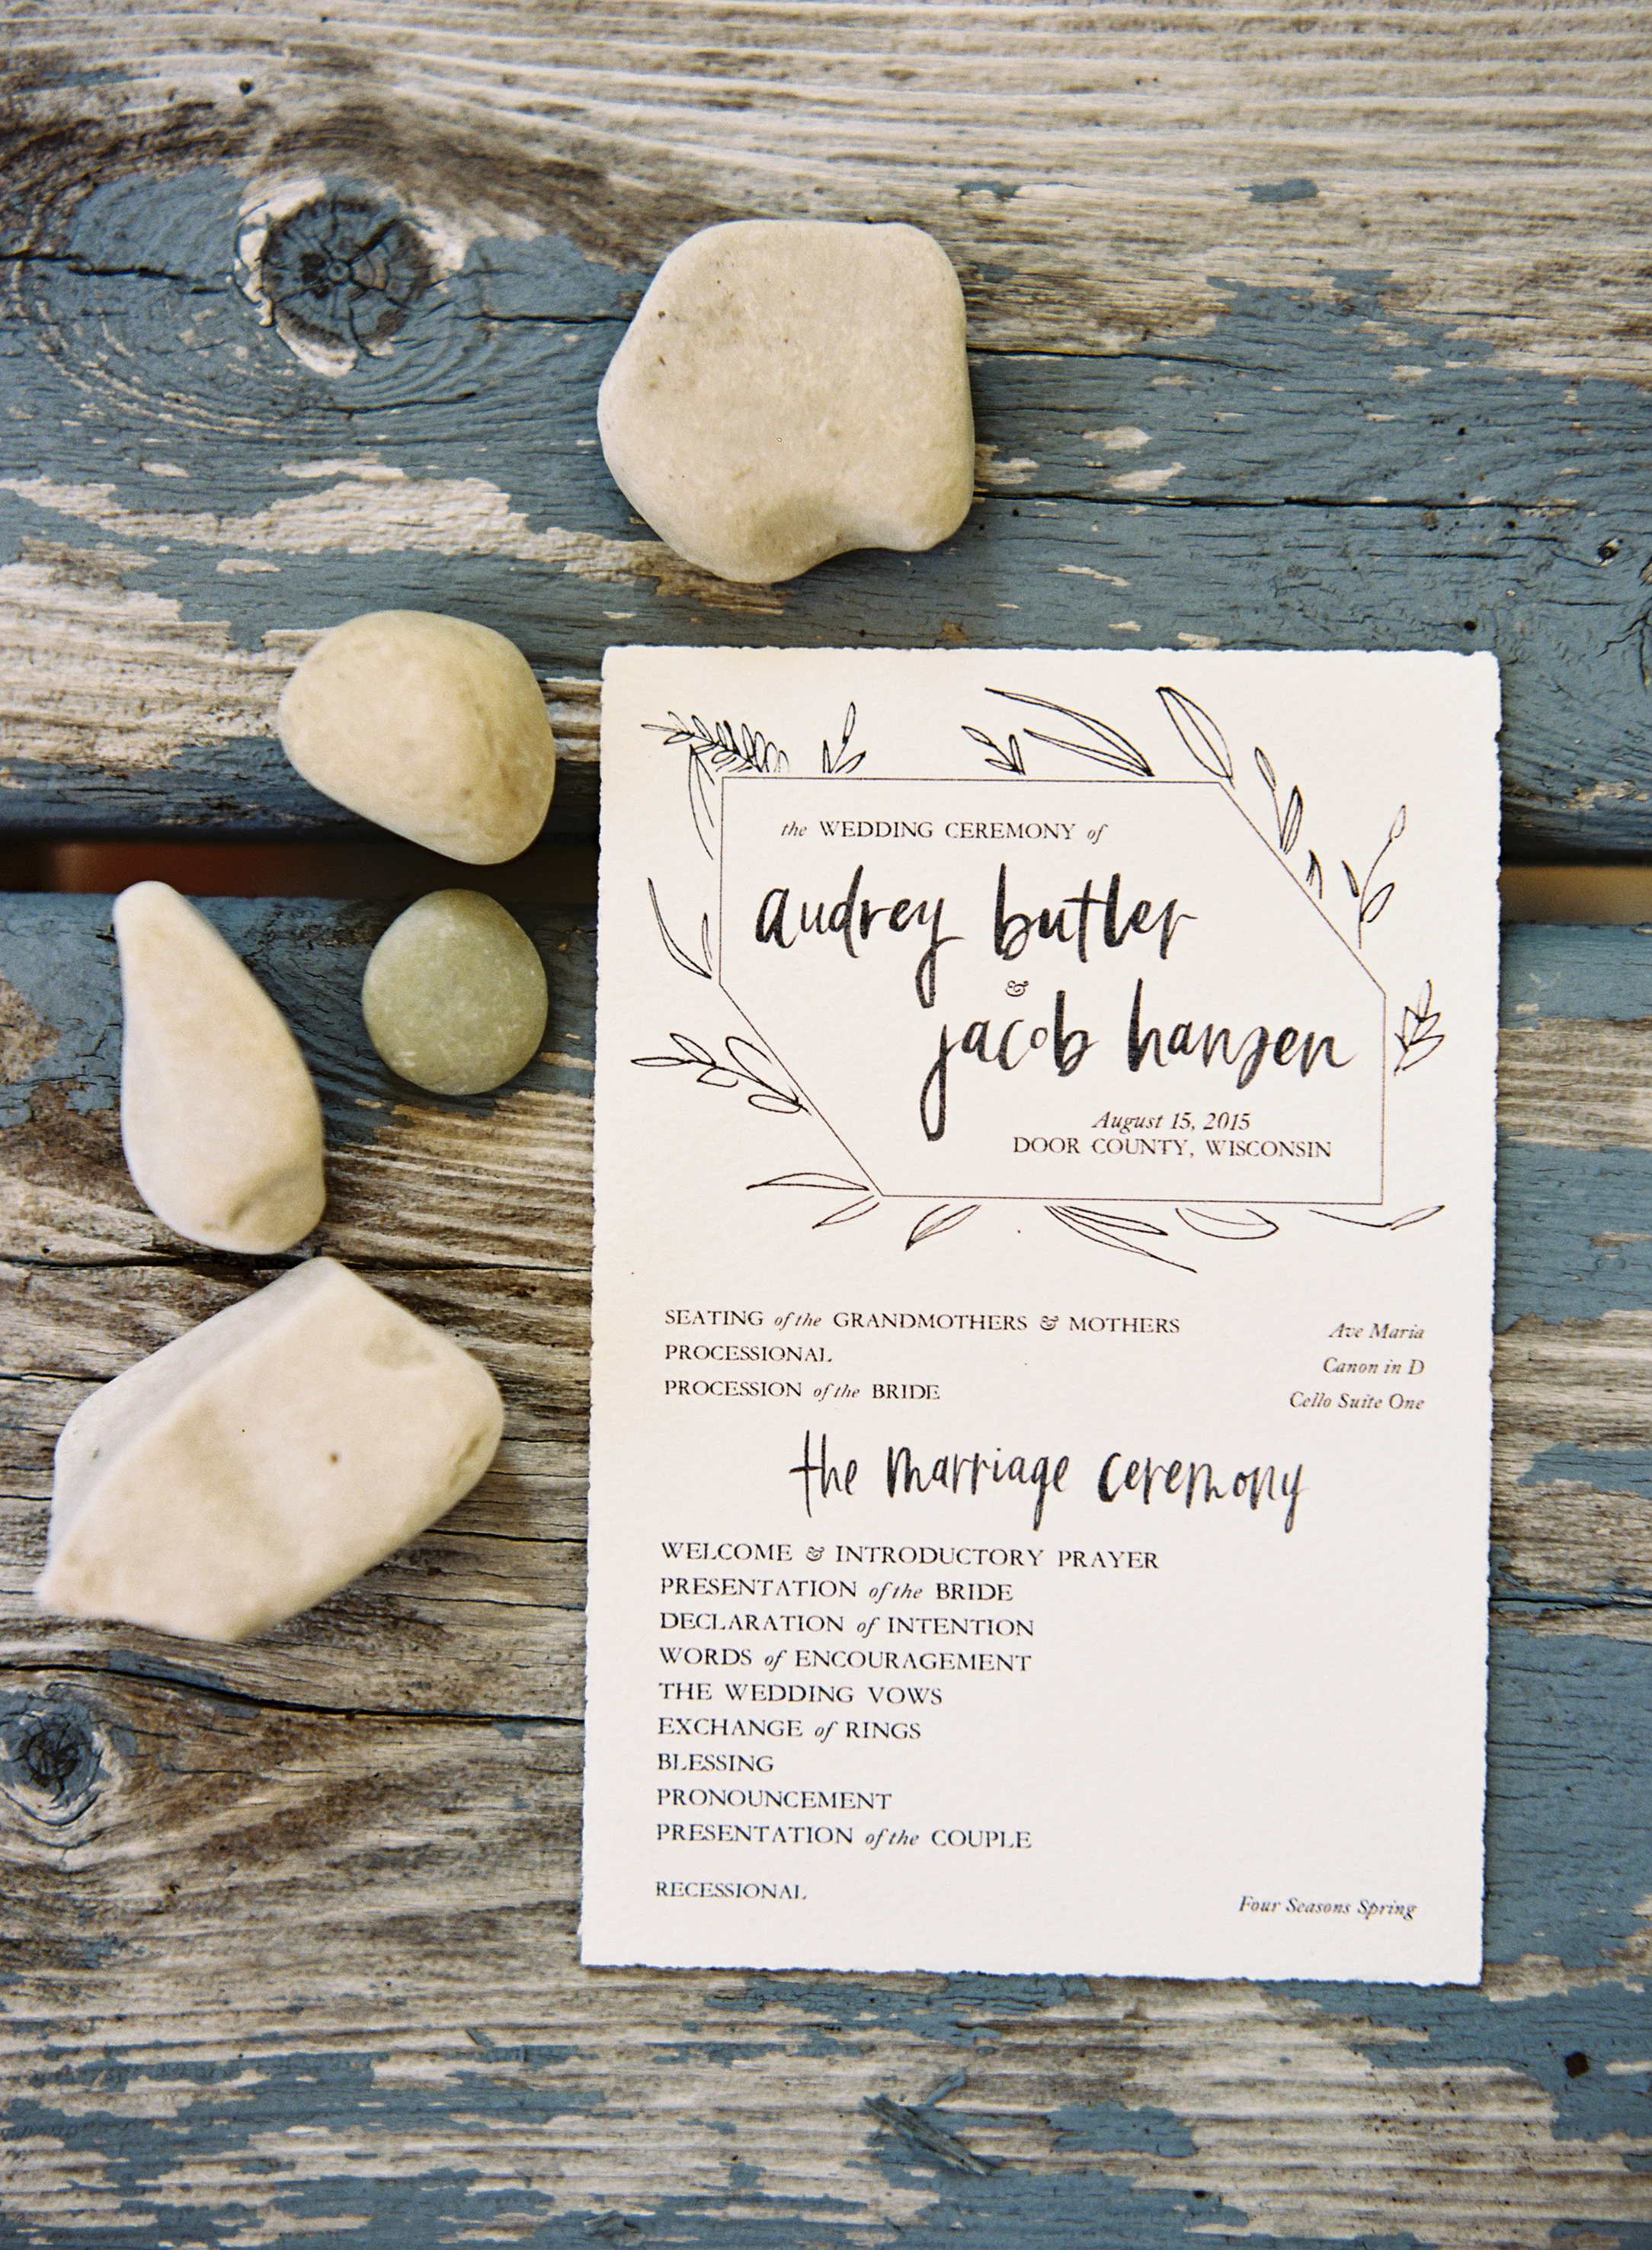 the WEDDING CEREMONY of
audrey butler
&
jacob hansen
August 15, 2015
DOOR COUNTY, WISCONSIN
SEATING of the GRANDMOTHERS & MOTHERS Ave Maria
PROCESSIONAL Canon in D
PROCESSION of the BRIDE Cello Suite One
the marriage ceremony
WELCOME & INTRODUCTORY PRAYER
PRESENTATION of the BRIDE
DECLARATION of INTENTION
WORDS of ENCOURAGEMENT
THE WEDDING VOWS
EXCHANGE of RINGS
BLESSING
PRONOUNCEMENT
PRESENTATION of the COUPLE
RECESSIONAL Four Seasons Spring